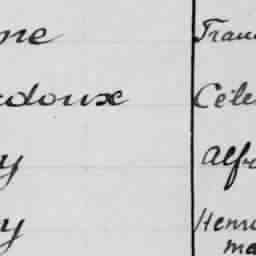 ne Fran
doux Céle
y Alfr
y Henri
ma